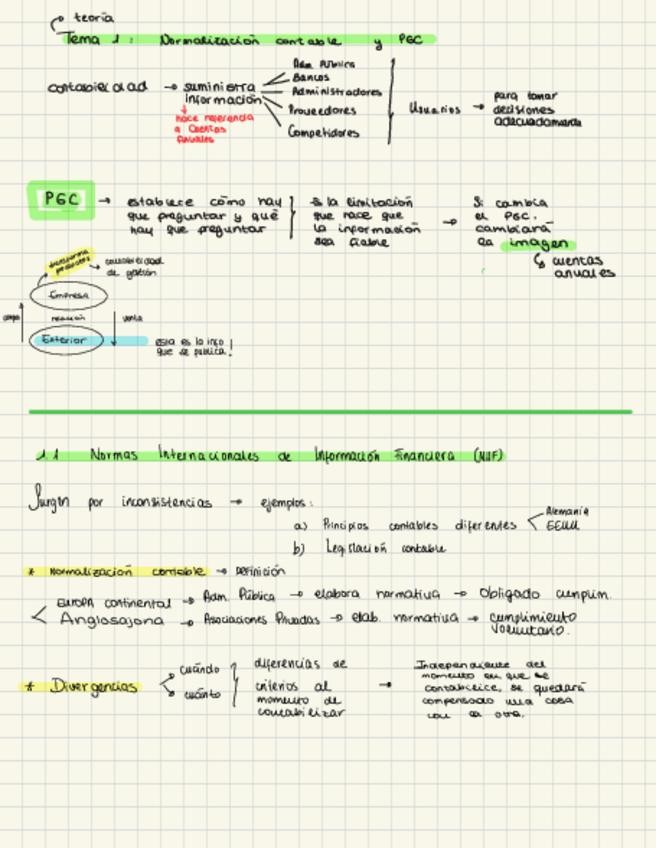 teoría
Tema 1: Normalización contable y PGC
contabilidad → suministra información
hace referencia a Cuentas Anuales
Adm. Pública
Bancos
Administradores
Proveedores
Competidores
Usuarios → para tomar decisiones adecuadamente
PGC → establece cómo hay
que preguntar y qué
hay que preguntar
Es la limitación
que hace que
la información
sea fiable
→ Si cambia
el PGC,
cambiará
la imagen
cuentas
anuales
transforma
productos
→ contabilidad
de gestión
Empresa
compra
relación
venta
Exterior
esta es la info
que se publica!
1.1 Normas Internacionales de Información Financiera (NIIF)
Surgen por inconsistencias → ejemplos:
a) Principios contables diferentes < Alemania
EEUU
b) Legislación contable
* Normalización contable → Definición
Europa continental → Adm. Pública → elabora normativa → Obligado cumplim.
Anglosajona → Asociaciones Privadas → elab. normativa → cumplimiento
voluntario.
* Divergencias
cuándo
cuánto
diferencias de
criterios al
momento de
contabilizar
→ Independiente del
momento en que se
contabilice, se quedará
compensado una cosa
con la otra.